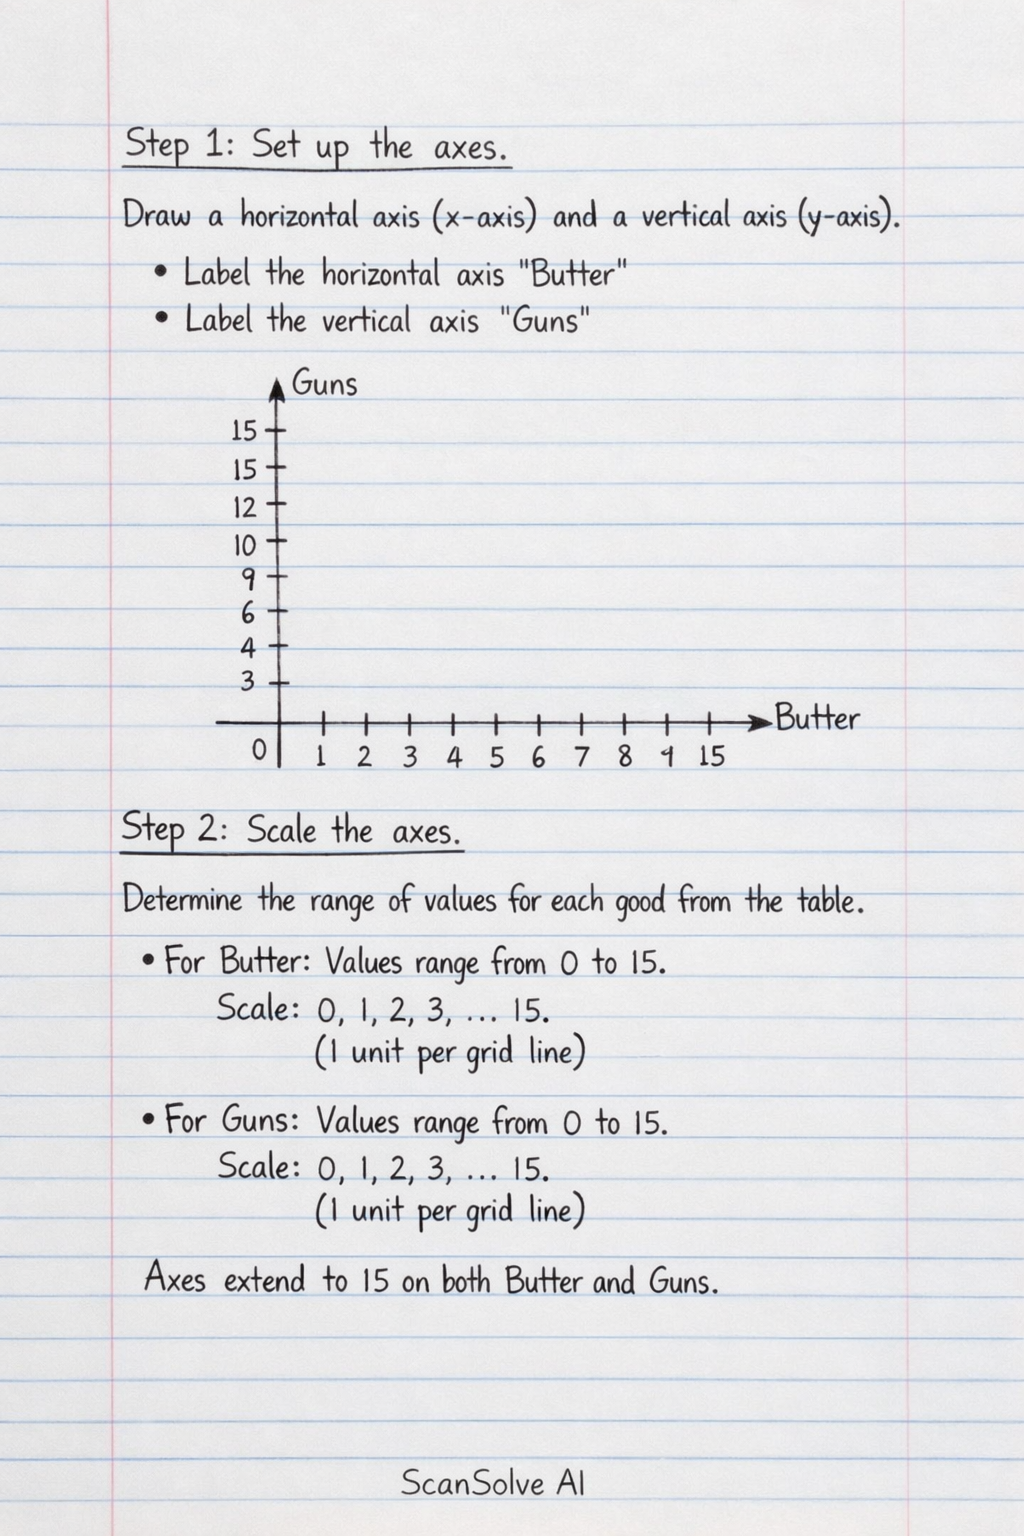 Step 1: Set up the axes.
Draw a horizontal axis (x-axis) and a vertical axis (y-axis).
• Label the horizontal axis "Butter"
• Label the vertical axis "Guns"
Guns
15
15
12
10
9
6
4
3
Butter
0 1 2 3 4 5 6 7 8 9 15
Step 2: Scale the axes.
Determine the range of values for each good from the table.
• For Butter: Values range from 0 to 15.
Scale: 0, 1, 2, 3, ... 15.
(1 unit per grid line)
• For Guns: Values range from 0 to 15.
Scale: 0, 1, 2, 3, ... 15.
(1 unit per grid line)
Axes extend to 15 on both Butter and Guns.
ScanSolve AI